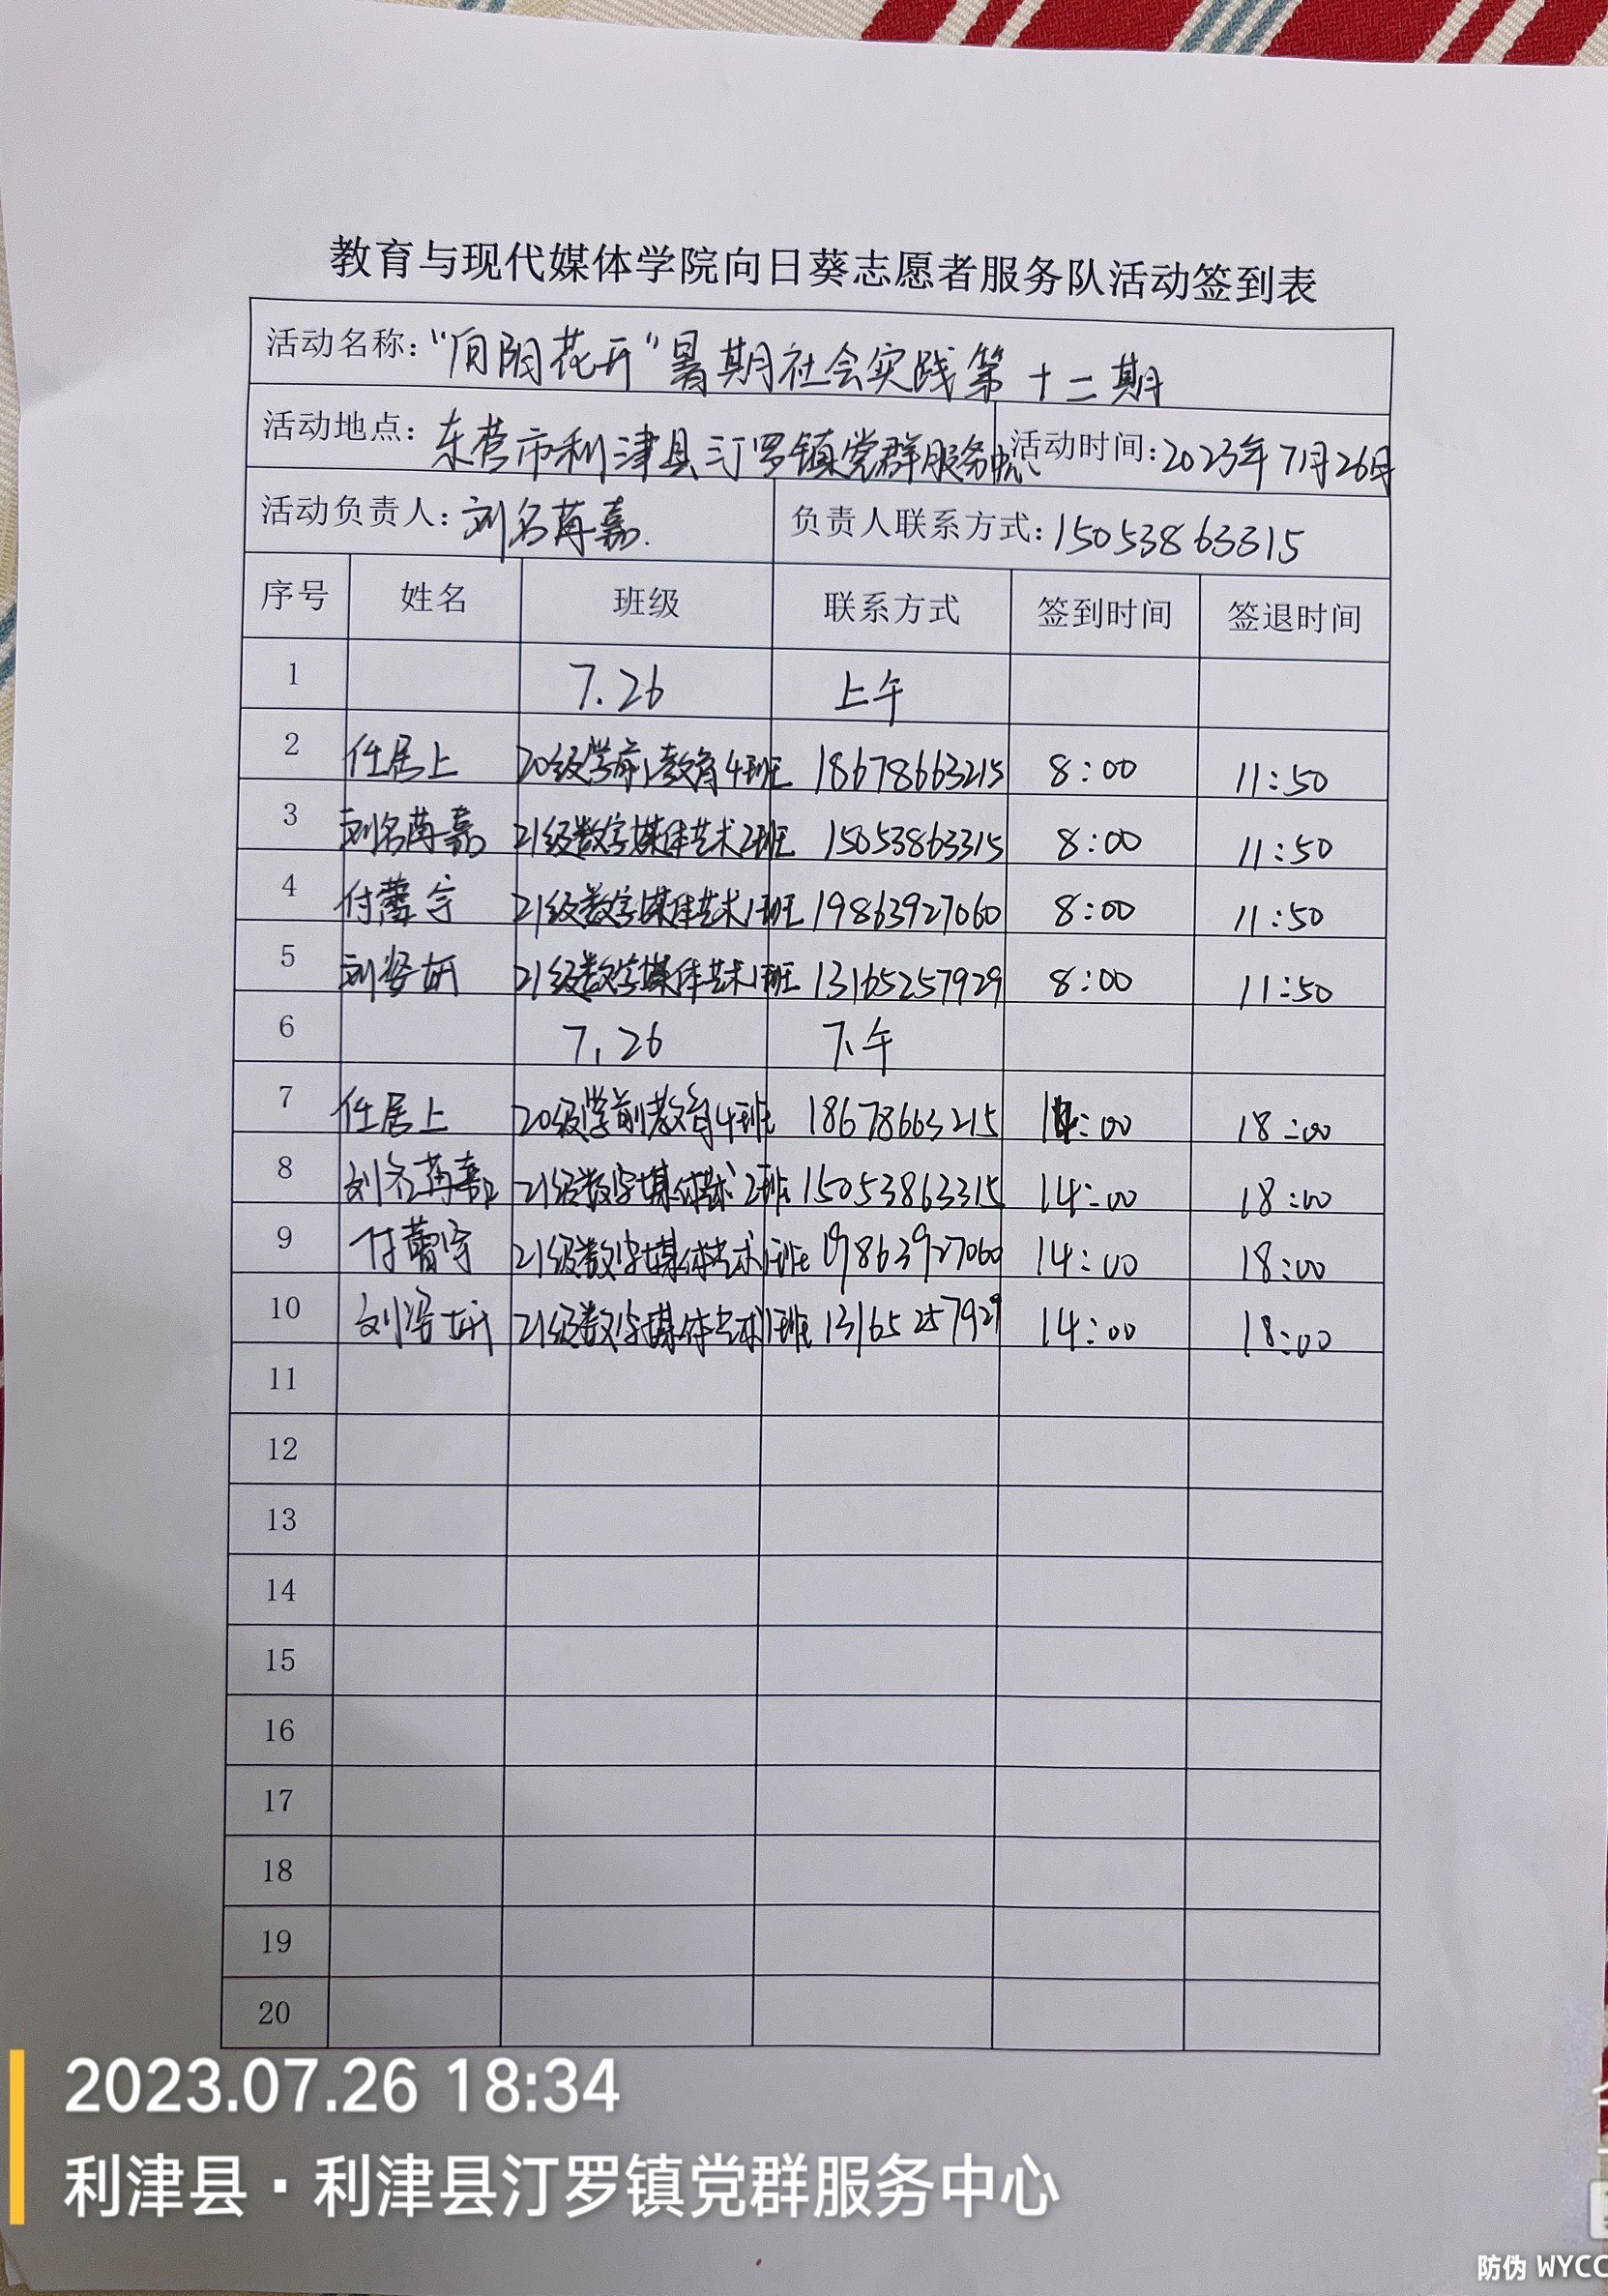 教育与现代媒体学院向日葵志愿者服务队活动签到表
活动名称：“向阳花开”暑期社会实践第十二期
活动地点：东营市利津县汀罗镇党群服务中心 活动时间：2023年7月26日
活动负责人：刘名苒嘉 负责人联系方式：15053863315
序号 姓名 班级 联系方式 签到时间 签退时间
1 7.26 上午
2 任居上 20级学前教育4班 18678663215 8:00 11:50
3 刘名苒嘉 21级数字媒体艺术2班 15053863315 8:00 11:50
4 付蕾宇 21级数字媒体艺术1班 19863927060 8:00 11:50
5 刘姿妍 21级数字媒体艺术1班 13165257929 8:00 11:50
6 7.26 下午
7 任居上 20级学前教育4班 18678663215 14:00 18:00
8 刘名苒嘉 21级数字媒体艺术2班 15053863315 14:00 18:00
9 付蕾宇 21级数字媒体艺术1班 19863927060 14:00 18:00
10 刘姿妍 21级数字媒体艺术1班 13165257929 14:00 18:00
11
12
13
14
15
16
17
18
19
20
2023.07.26 18:34
利津县·利津县汀罗镇党群服务中心
防伪 WYCC